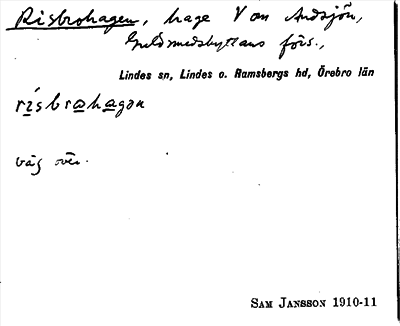 Risbrohagen, hage V om Andsjön,
Guldsmedshyttans förs.,
Lindes sn, Lindes o. Ramsbergs hd, Örebro län
väg över.
SAM JANSSON 1910-11